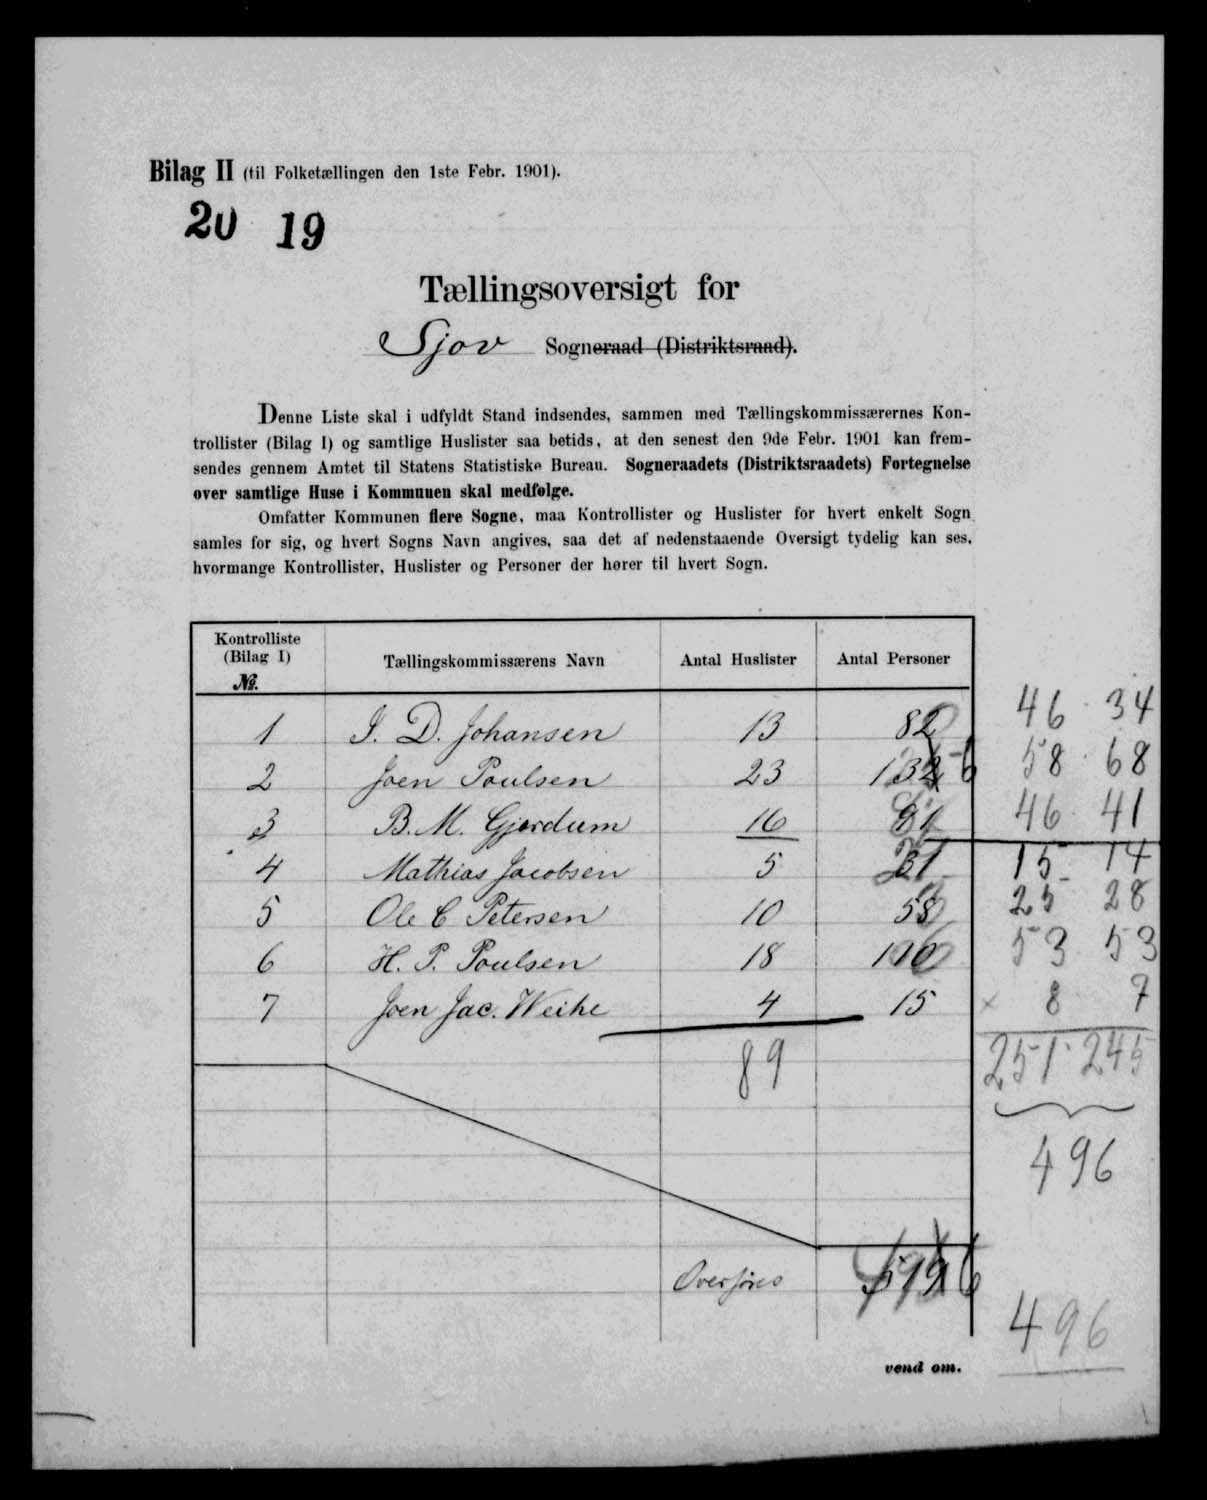 Bilag II (til Folketællingen den 1ste Febr. 1901).
20 19
Tællingsoversigt for
Sjov Sogneraad (Distriktsraad).
Denne Liste skal i udfyldt Stand indsendes, sammen med Tællingskommissærernes Kon-
trollister (Bilag I) og samtlige Huslister saa betids, at den senest den 9de Febr. 1901 kan frem-
sendes gennem Amtet til Statens Statistiske Bureau. Sogneraadets (Distriktsraadets) Fortegnelse
over samtlige Huse i Kommunen skal medfølge.
Omfatter Kommunen flere Sogne, maa Kontrollister og Huslister for hvert enkelt Sogn
samles for sig, og hvert Sogns Navn angives, saa det af nedenstaaende Oversigt tydelig kan ses,
hvormange Kontrollister, Huslister og Personer der hører til hvert Sogn.
Kontrolliste (Bilag I) No. Tællingskommissærens Navn Antal Huslister Antal Personer
1 J. D. Johansen 13 82 46 34
2 Joen Poulsen 23 132 58 68
3 B. M. Gjerdum 16 46 41
4 Mathias Jacobsen 5 31 15 14
5 Ole C Petersen 10 58 25 28
6 H. P. Poulsen 18 53 53
7 Joen Jac. Weihe 4 15 8 7
89 251 245
496
Overføres
496
vend om.